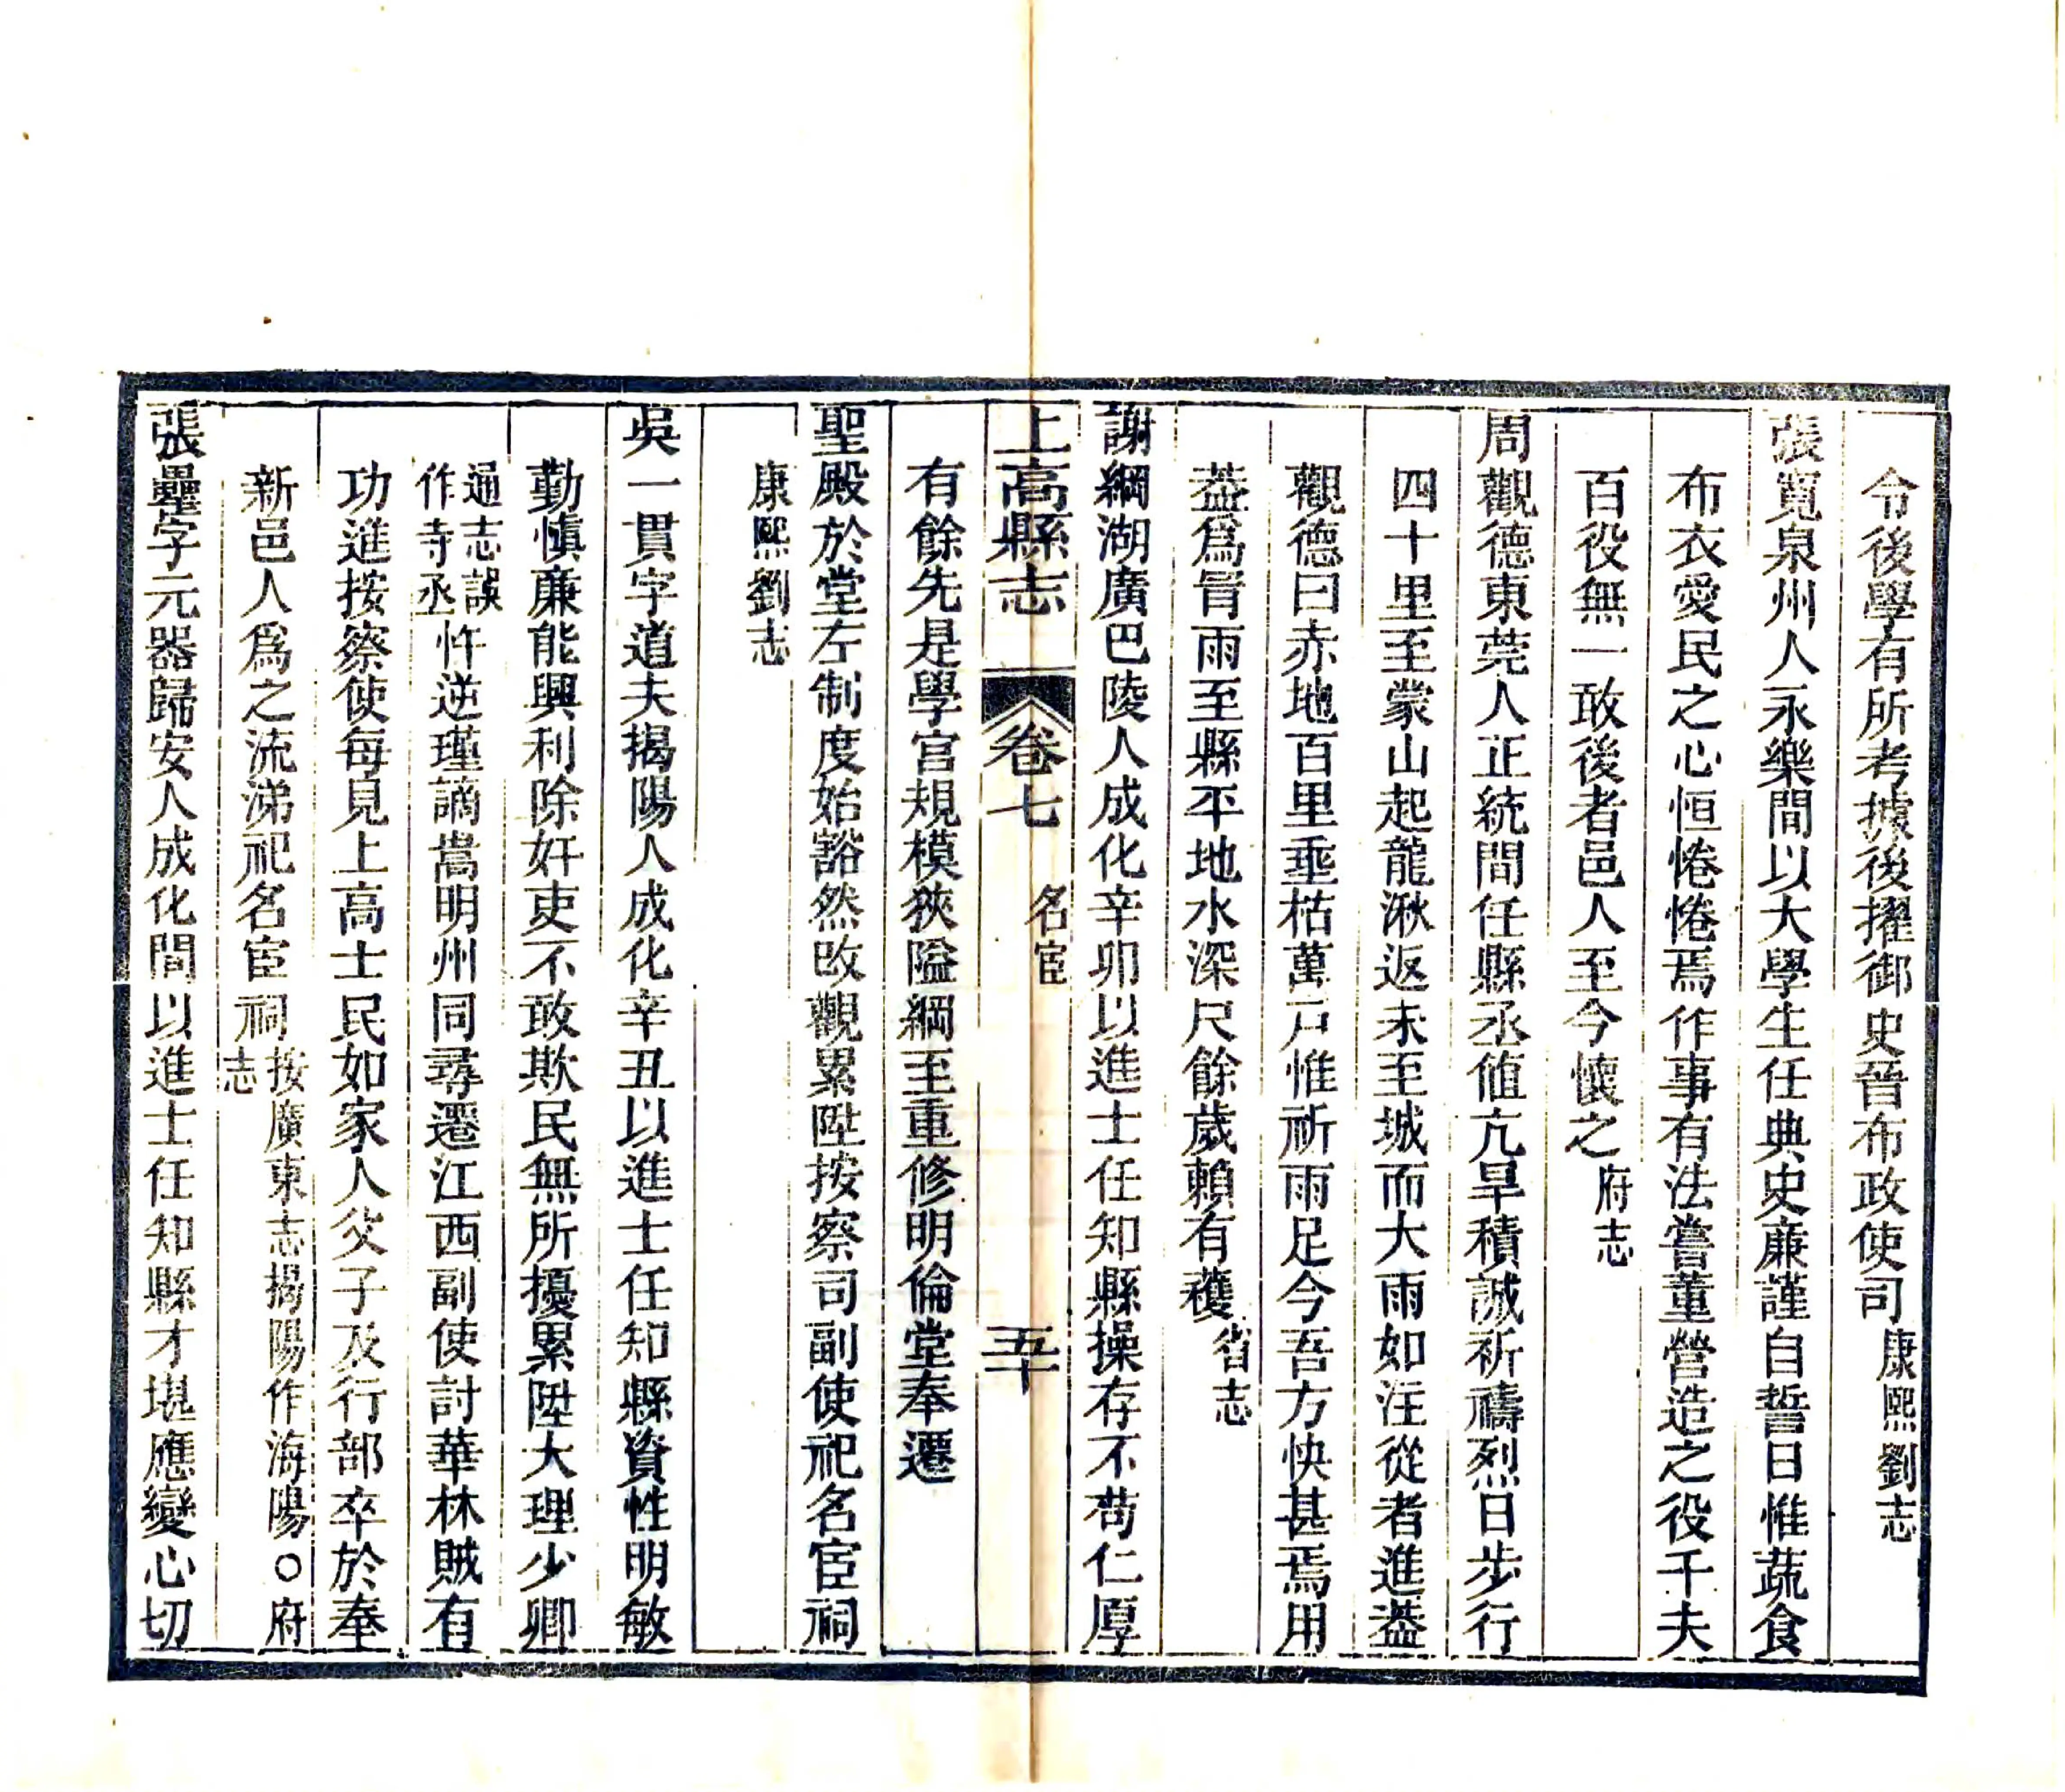 令後學有所考據後擢御史晉布政使司康熙劉志
張寬泉州人永樂間以大學生任典史廉謹自誓日惟蔬食
布衣愛民之心恒惓惓焉作事有法嘗董營造之役千夫
百役無一敢後者邑人至今懷之府志
周觀德東莞人正統間任縣丞值亢旱積誠祈禱烈日步行
四十里至蒙山起龍湫返未至城而大雨如注從者進葢
觀德曰赤地百里垂枯萬戸惟祈雨足今吾方快甚焉用
葢爲冒雨至縣平地水深尺餘歲賴有穫省志
謝綱湖廣巴陵人成化辛卯以進士任知縣操存不苟仁厚
上高縣志 卷七 名宦 五十
有餘先是學宮規模狹隘綱至重修明倫堂奉遷
聖殿於堂左制度始豁然改觀累陞按察司副使祀名宦祠
康熙劉志
吳一貫字道夫揭陽人成化辛丑以進士任知縣資性明敏
勤慎廉能興利除奸吏不敢欺民無所擾累陞大理少卿
通志誤作寺丞忤逆瑾謫嵩明州同尋遷江西副使討華林賊有
功進按察使每見上高士民如家人父子及行部卒於奉
新邑人爲之流涕祀名宦祠按廣東志揭陽作海陽○府志
張壘字元器歸安人成化間以進士任知縣才堪應變心切